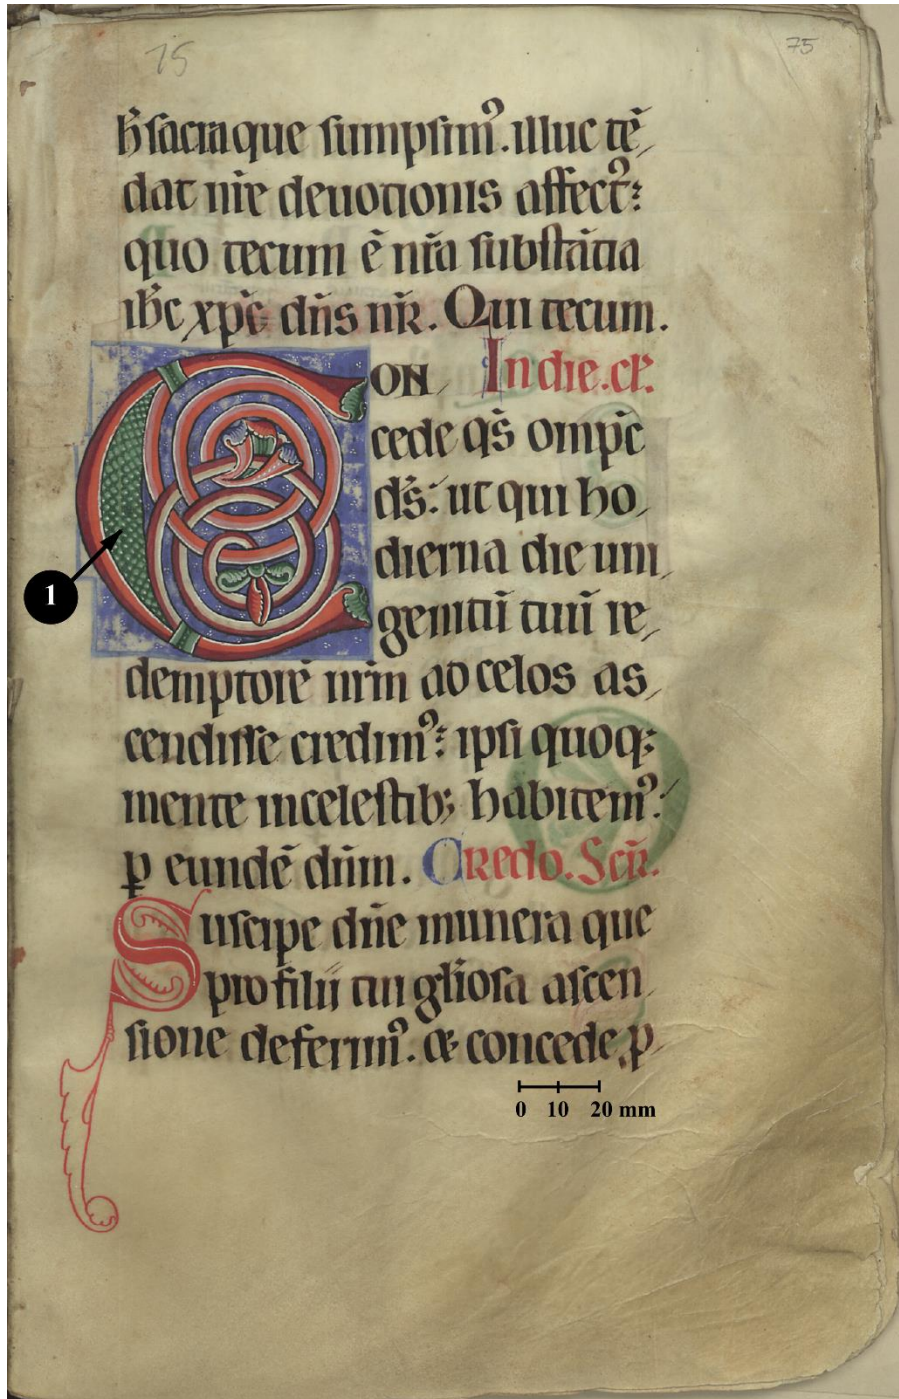 15
75
h̄ sacra que sumpsim᷒. illuc tē
dat nr̄e deuotionis affect᷒:
quo tecum ē nr̄a substātia
ih̄c xp̄c dn̄s nr̄. Qui tecum.
CON In die.
cede q̄s omp̄c
ds̄: ut qui ho
dierna die uni
genitū tuū re
demptorē nr̄m ad celos as
cendisse credim᷒: ipsi quoq;
mente in celestib; habitem᷒:
p eundē dn̄m. Credo. Scr̄.
Suscipe dn̄e munera que
pro filii tui gl̄iosa ascen
sione deferim᷒. & concede. p
1
0 10 20 mm